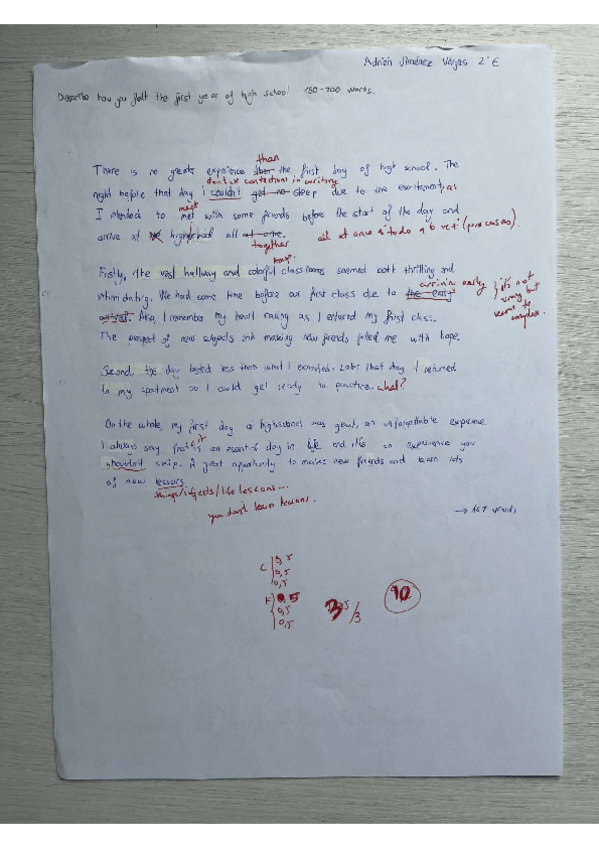 Adrián Jiménez Vargas 2ºE
Describe how you felt the first year of high school 150-200 words.
than
There is no greater experience the first day of high school. The
dont use contractions in writing
night before that day i couldn't get no sleep due to the excitement, as
meet
I intended to met with some friends before the start of the day and
arrive at highschool all at once.
together
Firstly, the vast hallway and colorful classrooms seemed both thrilling and
arriving early
intimidating. We had some time before our first class due to the early
it's not wrong but
arrival. Also, I remember my heart racing as I entered my first class.
The prospect of new subjects and making new friends filled me with hope.
Second, the day lasted less than what I expected. Later that day I returned
to my apartment so I could get ready to practice. what?
On the whole, my first day at highschool was great, an unforgettable experience.
I always say that is an essential day in life and it's an experience you
shouldn't skip. A great opportunity to makes new friends and learn lots
of new lessons.
things/objects/life lessons...
you don't learn lessons.
→ 167 words
C 0,5
0,5
0,5
F 0,5
0,5
0,5
/3
10